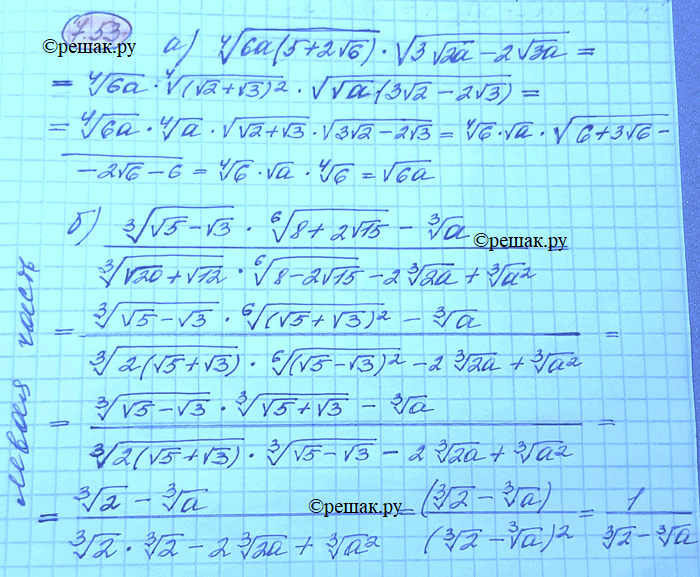 7.53
©решак.ру
а) ⁴√(6a(5+2√6)) · √(3√(2a) − 2√(3a)) =
= ⁴√(6a) · ⁴√((√2+√3)²) · √(√a(3√2 − 2√3)) =
= ⁴√(6a) · ⁴√a · √(√2+√3) · √(3√2 − 2√3) = ⁴√6 · √a · √(6+3√6 −
−2√6 − 6) = ⁴√6 · √a · ⁴√6 = √(6a)
левая часть
б) (³√(√5 − √3) · ⁶√(8 + 2√15) − ³√a) / (³√(√20 + √12) · ⁶√(8 − 2√15) − 2 ³√(2a) + ³√(a²))
©решак.ру
= (³√(√5 − √3) · ⁶√((√5 + √3)²) − ³√a) / (³√(2(√5 + √3)) · ⁶√((√5 − √3)²) − 2 ³√(2a) + ³√(a²)) =
= (³√(√5 − √3) · ³√(√5 + √3) − ³√a) / (³√(2(√5 + √3)) · ³√(√5 − √3) − 2 ³√(2a) + ³√(a²)) =
= (³√2 − ³√a) / (³√2 · ³√2 − 2 ³√(2a) + ³√(a²)) = (³√2 − ³√a) / (³√2 − ³√a)² = 1 / (³√2 − ³√a)
©решак.ру